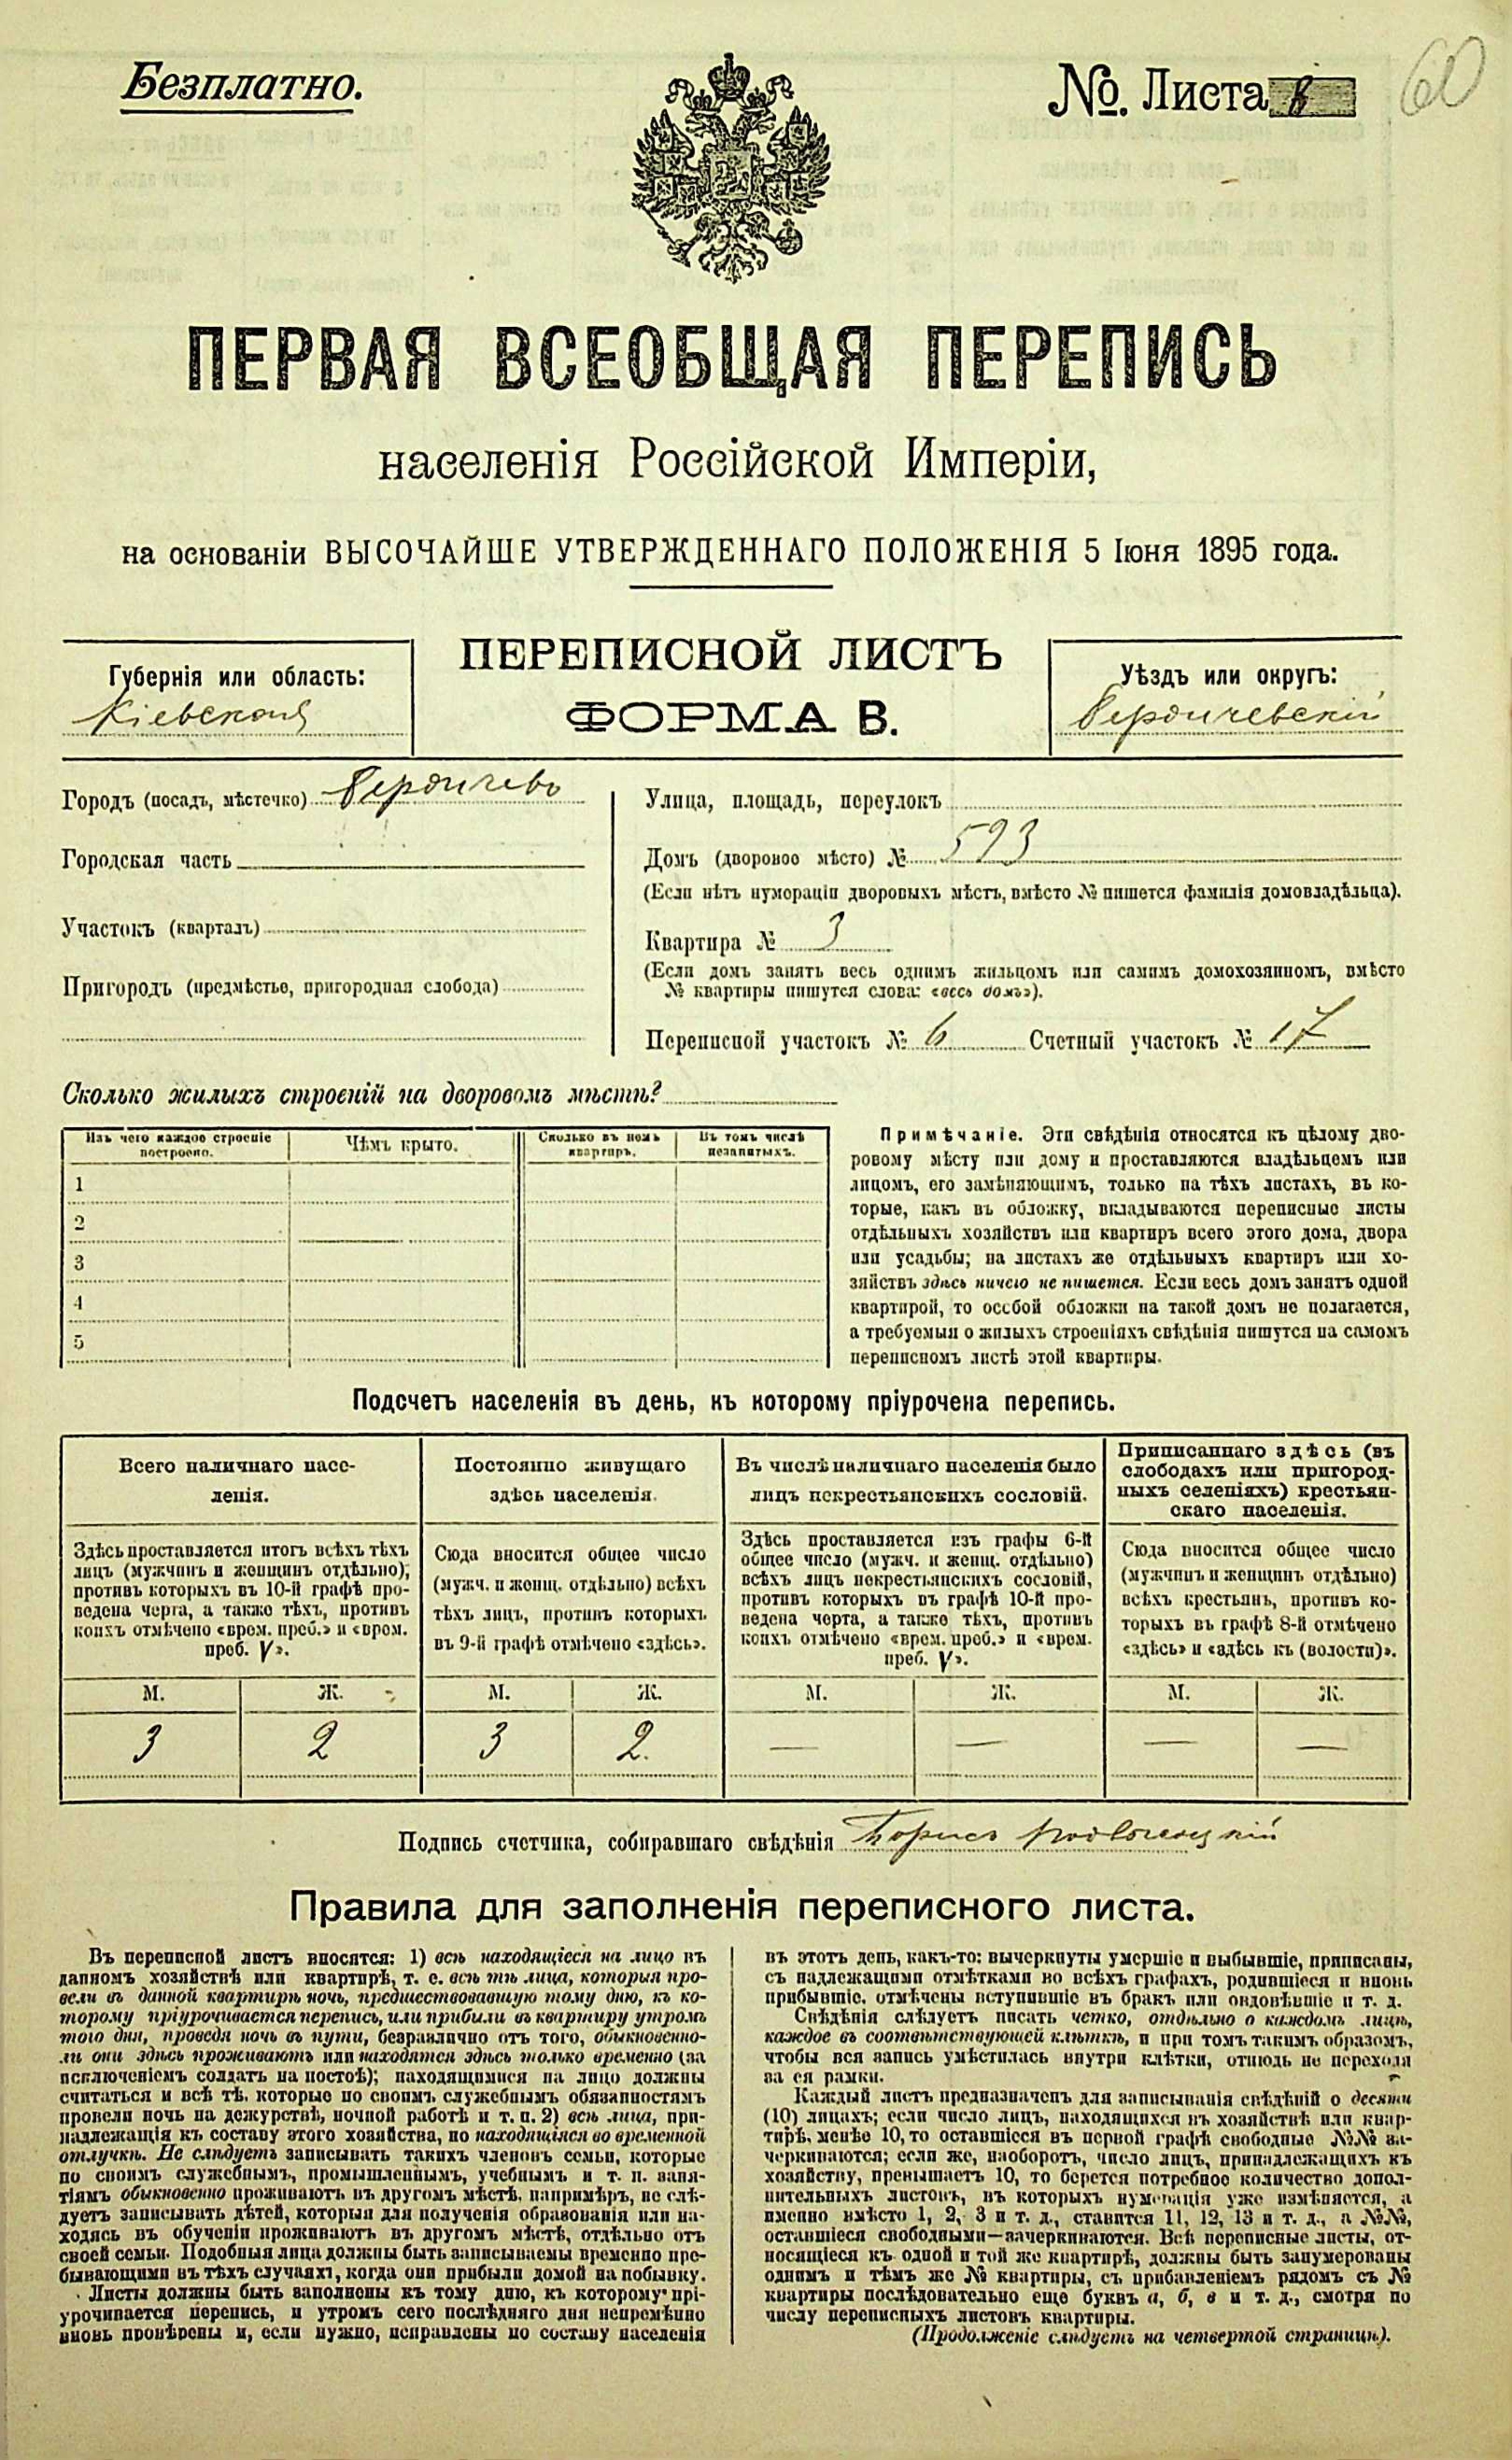 Безплатно.
№. Листа
60
ПЕРВАЯ ВСЕОБЩАЯ ПЕРЕПИСЬ
населенія Россійской Имперіи,
на основаніи ВЫСОЧАЙШЕ УТВЕРЖДЕННАГО ПОЛОЖЕНІЯ 5 Іюня 1895 года.
Губернія или область:
Кіевская
ПЕРЕПИСНОЙ ЛИСТЪ
ФОРМА В.
Уѣздъ или округъ:
Бердичевскій
Городъ (посадъ, мѣстечко) Бердичевъ
Городская часть
Участокъ (кварталъ)
Пригородъ (предмѣстье, пригородная слобода)
Улица, площадь, переулокъ
Домъ (дворовое мѣсто) № 593
(Если нѣтъ нумераціи дворовыхъ мѣстъ, вмѣсто № пишется фамилія домовладѣльца).
Квартира № 3
(Если домъ занятъ весь однимъ жильцомъ или самимъ домохозяиномъ, вмѣсто
№ квартиры пишутся слова: «весь домъ»).
Переписной участокъ № 6 Счетный участокъ № 17
Сколько жилыхъ строеній на дворовомъ мѣстѣ?
Изъ чего каждое строеніе
построено.
Чѣмъ крыто.
Сколько въ немъ
квартиръ.
Въ томъ числѣ
незанятыхъ.
1
2
3
4
5
Примѣчаніе. Эти свѣдѣнія относятся къ цѣлому дво-
ровому мѣсту или дому и проставляются владѣльцемъ или
лицомъ, его замѣняющимъ, только на тѣхъ листахъ, въ ко-
торые, какъ въ обложку, вкладываются переписные листы
отдѣльныхъ хозяйствъ или квартиръ всего этого дома, двора
или усадьбы; на листахъ же отдѣльныхъ квартиръ или хо-
зяйствъ здѣсь ничего не пишется. Если весь домъ занятъ одной
квартирой, то особой обложки на такой домъ не полагается,
а требуемыя о жилыхъ строеніяхъ свѣдѣнія пишутся на самомъ
переписномъ листѣ этой квартиры.
Подсчетъ населенія въ день, къ которому пріурочена перепись.
Всего наличнаго насе-
ленія.
Здѣсь проставляется итогъ всѣхъ тѣхъ
лицъ (мужчинъ и женщинъ отдѣльно),
противъ которыхъ въ 10-й графѣ про-
ведена черта, а также тѣхъ, противъ
коихъ отмѣчено «врем. преб.» и «врем.
преб. V».
Постоянно живущаго
здѣсь населенія.
Сюда вносится общее число
(мужч. и женщ. отдѣльно) всѣхъ
тѣхъ лицъ, противъ которыхъ
въ 9-й графѣ отмѣчено «здѣсь».
Въ числѣ наличнаго населенія было
лицъ некрестьянскихъ сословій.
Здѣсь проставляется изъ графы 6-й
общее число (мужч. и женщ. отдѣльно)
всѣхъ лицъ некрестьянскихъ сословій,
противъ которыхъ въ графѣ 10-й про-
ведена черта, а также тѣхъ, противъ
коихъ отмѣчено «врем. преб.» и «врем.
преб. V».
Приписаннаго здѣсь (въ
слободахъ или пригород-
ныхъ селеніяхъ) крестьян-
скаго населенія.
Сюда вносится общее число
(мужчинъ и женщинъ отдѣльно)
всѣхъ крестьянъ, противъ ко-
торыхъ въ графѣ 8-й отмѣчено
«здѣсь» и «здѣсь къ (волости)».
М. Ж. М. Ж. М. Ж. М. Ж.
3 2 3 2. — — — —
Подпись счетчика, собиравшаго свѣдѣнія Борисъ
Правила для заполненія переписного листа.
Въ переписной листъ вносятся: 1) всѣ находящіеся на лицо въ
данномъ хозяйствѣ или квартирѣ, т. е. всѣ тѣ лица, которыя про-
вели въ данной квартирѣ ночь, предшествовавшую тому дню, къ ко-
торому пріурочивается перепись, или прибыли въ квартиру утромъ
того дня, проведя ночь въ пути, безразлично отъ того, обыкновенно-
ли они здѣсь проживаютъ или находятся здѣсь только временно (за
исключеніемъ солдатъ на постоѣ); находящимися на лицо должны
считаться и всѣ тѣ, которые по своимъ служебнымъ обязанностямъ
провели ночь на дежурствѣ, ночной работѣ и т. п. 2) всѣ лица, при-
надлежащія къ составу этого хозяйства, но находящіяся во временной
отлучкѣ. Не слѣдуетъ записывать такихъ членовъ семьи, которые
по своимъ служебнымъ, промышленнымъ, учебнымъ и т. п. заня-
тіямъ обыкновенно проживаютъ въ другомъ мѣстѣ, напримѣръ, не слѣ-
дуетъ записывать дѣтей, которыя для полученія образованія или на-
ходясь въ обученіи проживаютъ въ другомъ мѣстѣ, отдѣльно отъ
своей семьи. Подобныя лица должны быть записываемы временно пре-
бывающими въ тѣхъ случаяхъ, когда они прибыли домой на побывку.
Листы должны быть заполнены къ тому дню, къ которому прі-
урочивается перепись, и утромъ сего послѣдняго дня непремѣнно
вновь провѣрены и, если нужно, исправлены по составу населенія
въ этотъ день, какъ-то: вычеркнуты умершіе и выбывшіе, приписаны,
съ надлежащими отмѣтками во всѣхъ графахъ, родившіеся и вновь
прибывшіе, отмѣчены вступившіе въ бракъ или овдовѣвшіе и т. д.
Свѣдѣнія слѣдуетъ писать четко, отдѣльно о каждомъ лицѣ,
каждое въ соотвѣтствующей клѣткѣ, и при томъ такимъ образомъ,
чтобы вся запись умѣстилась внутри клѣтки, отнюдь не переходя
за ея рамки.
Каждый листъ предназначенъ для записыванія свѣдѣній о десяти
(10) лицахъ; если число лицъ, находящихся въ хозяйствѣ или квар-
тирѣ, менѣе 10, то оставшіеся въ первой графѣ свободные №№ за-
черкиваются; если же, наоборотъ, число лицъ, принадлежащихъ къ
хозяйству, превышаетъ 10, то берется потребное количество допол-
нительныхъ листовъ, въ которыхъ нумерація уже измѣняется, а
именно вмѣсто 1, 2, 3 и т. д., ставится 11, 12, 13 и т. д., а №№,
оставшіеся свободными—зачеркиваются. Всѣ переписные листы, от-
носящіеся къ одной и той же квартирѣ, должны быть занумерованы
однимъ и тѣмъ же № квартиры, съ прибавленіемъ рядомъ съ №
квартиры послѣдовательно еще буквъ а, б, в и т. д., смотря по
числу переписныхъ листовъ квартиры.
(Продолженіе слѣдуетъ на четвертой страницѣ).